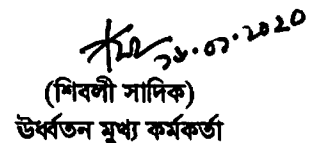 ২৬.০২.২০২০
(শিবলী সাদিক)
উর্ধ্বতন মুখ্য কর্মকর্তা